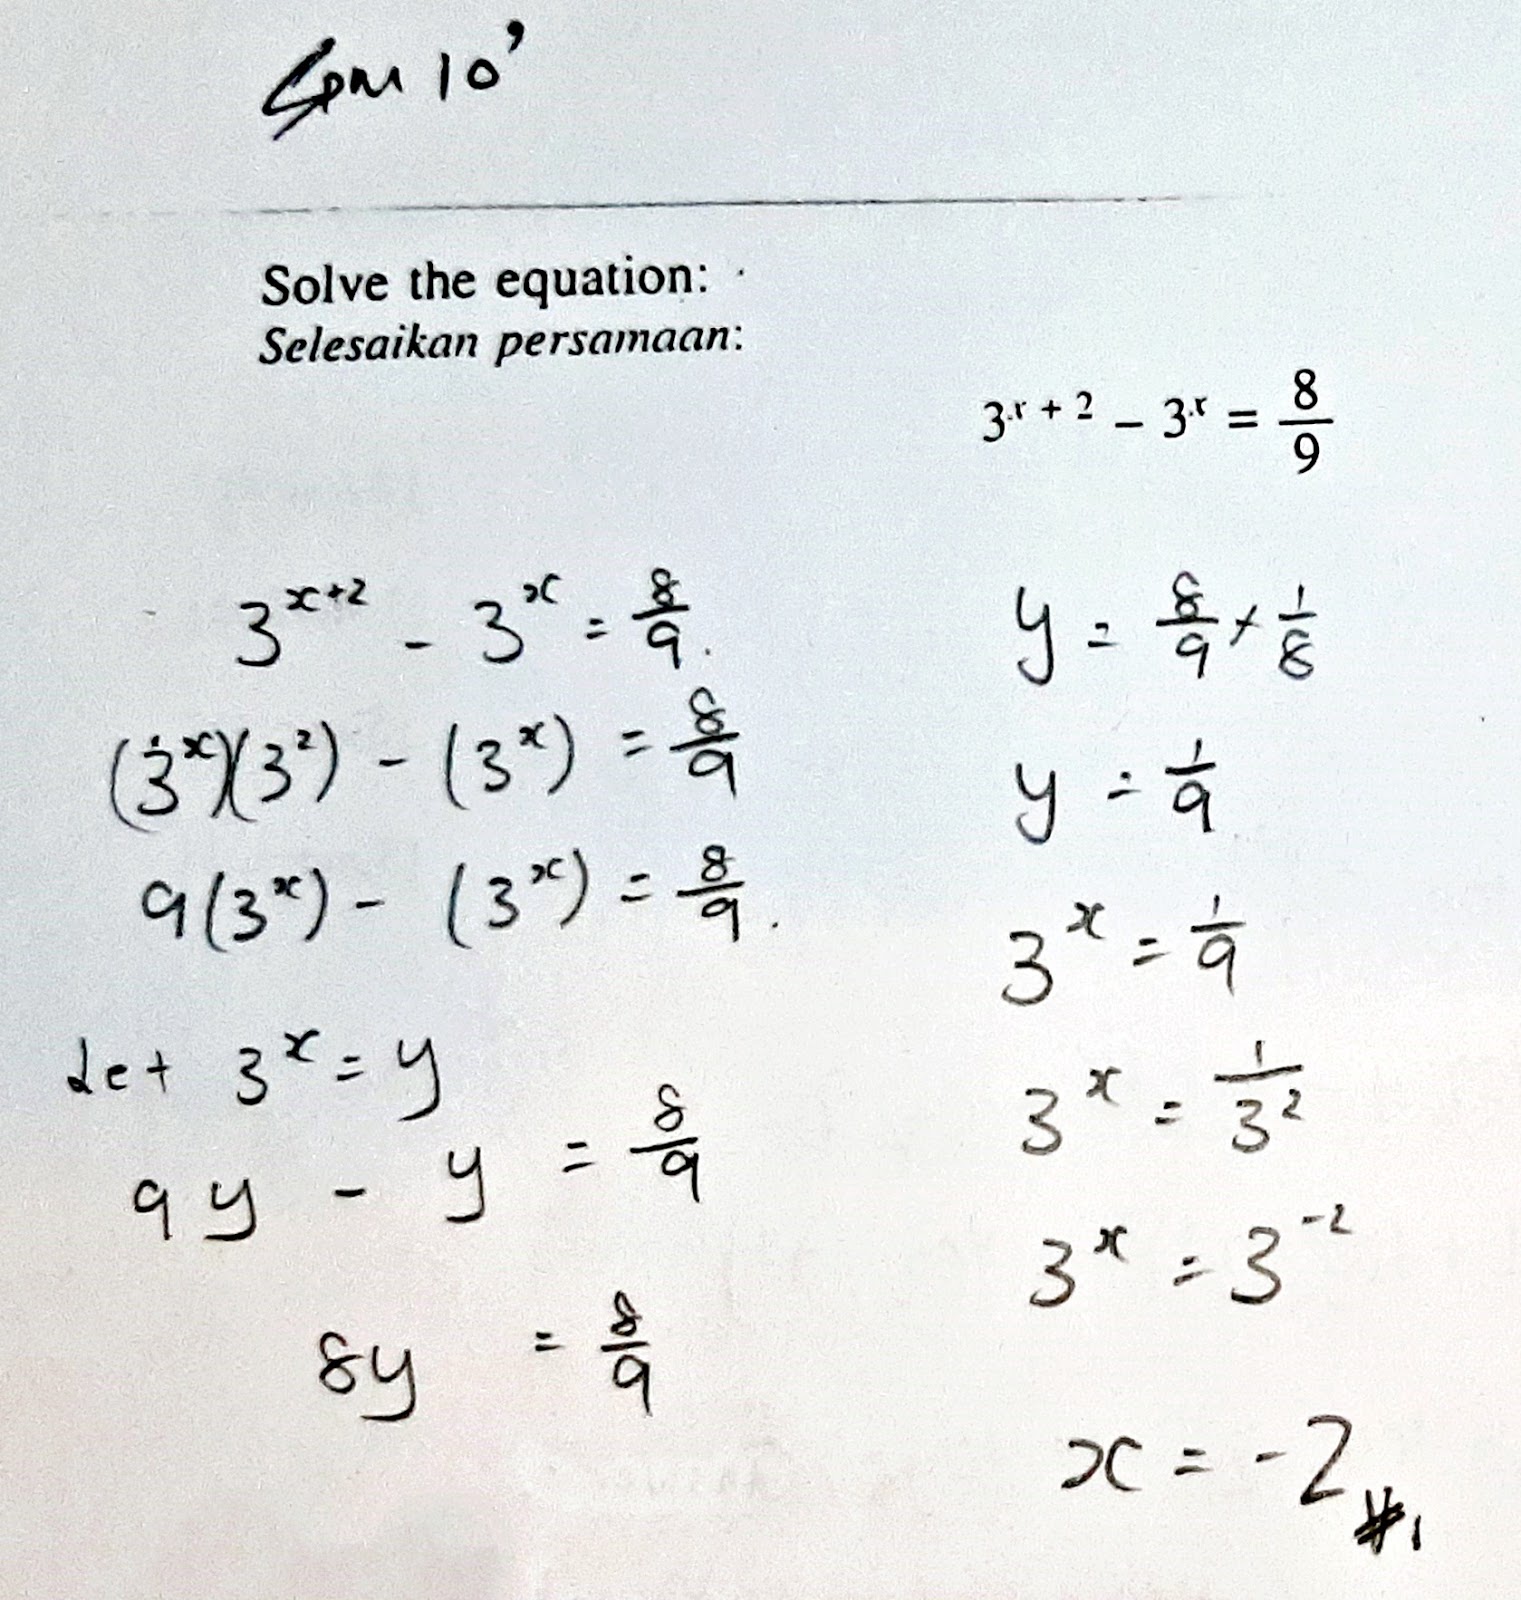 Spm 10'
Solve the equation:
Selesaikan persamaan:
3^{x + 2} – 3^{x} = 8/9
3^{x+2} - 3^{x} = 8/9.
(3^{x})(3^{2}) - (3^{x}) = 8/9
9(3^{x}) - (3^{x}) = 8/9.
Let 3^{x} = y
9y - y = 8/9
8y = 8/9
y = 8/9 × 1/8
y = 1/9
3^{x} = 1/9
3^{x} = 1/3^{2}
3^{x} = 3^{-2}
x = -2 #,